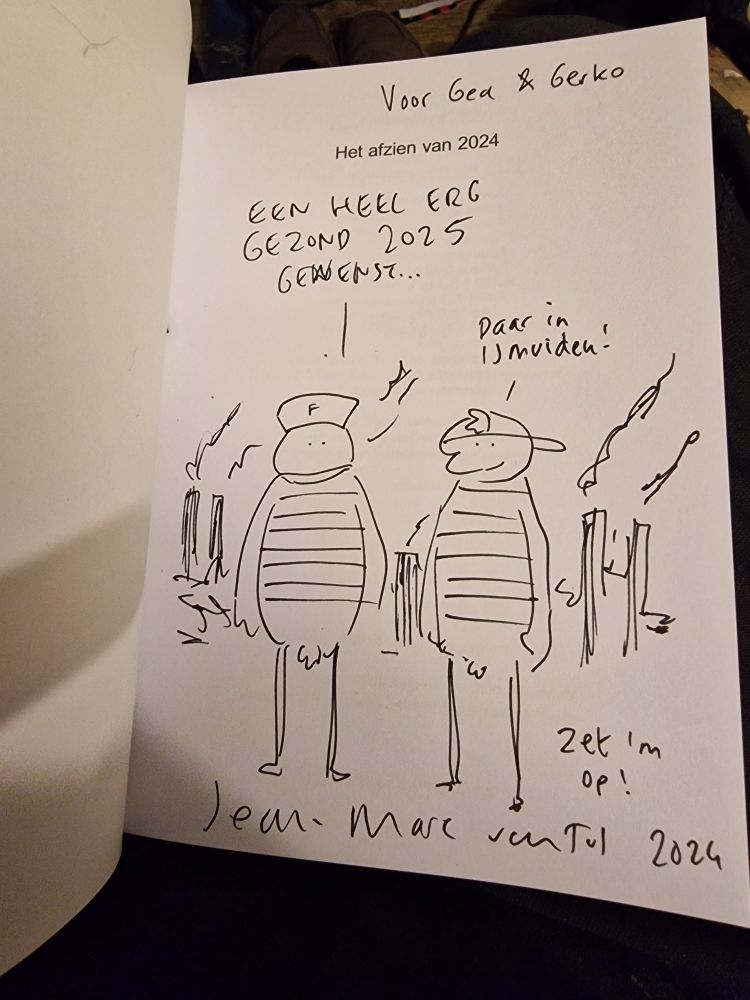 Voor Gea & Gerko
Het afzien van 2024
EEN HEEL ERG
GEZOND 2025
GEWENST...
Daar in
IJmuiden!
F
Zet 'm
op!
Jean-Marc van Tol 2024